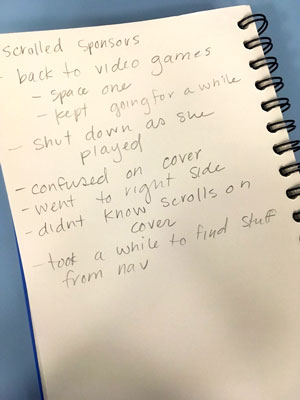 scrolled sponsors
- back to video games
- space one
- kept going for a while
- shut down as she
played
- confused on cover
- went to right side
- didnt know scrolls on
cover
- took a while to find stuff
from nav